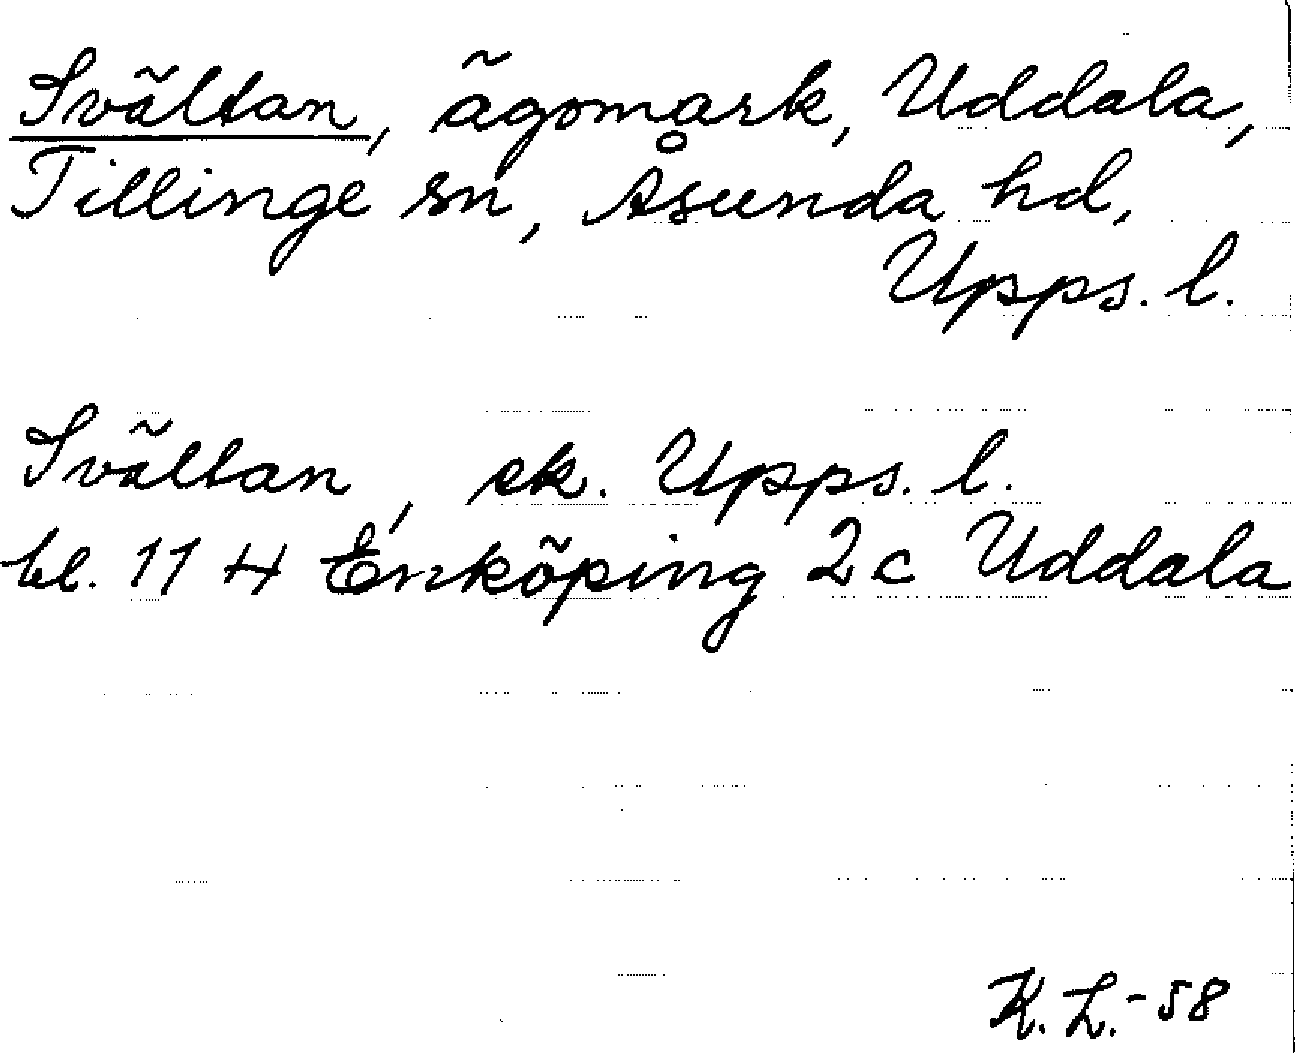 Svältan, ägomark, Uddala,
Tillinge sn, Åsunda hd,
Upps. l.
Svältan, ek. Upps. l.
bl. 11 H Enköping 2c Uddala
K. L. -58